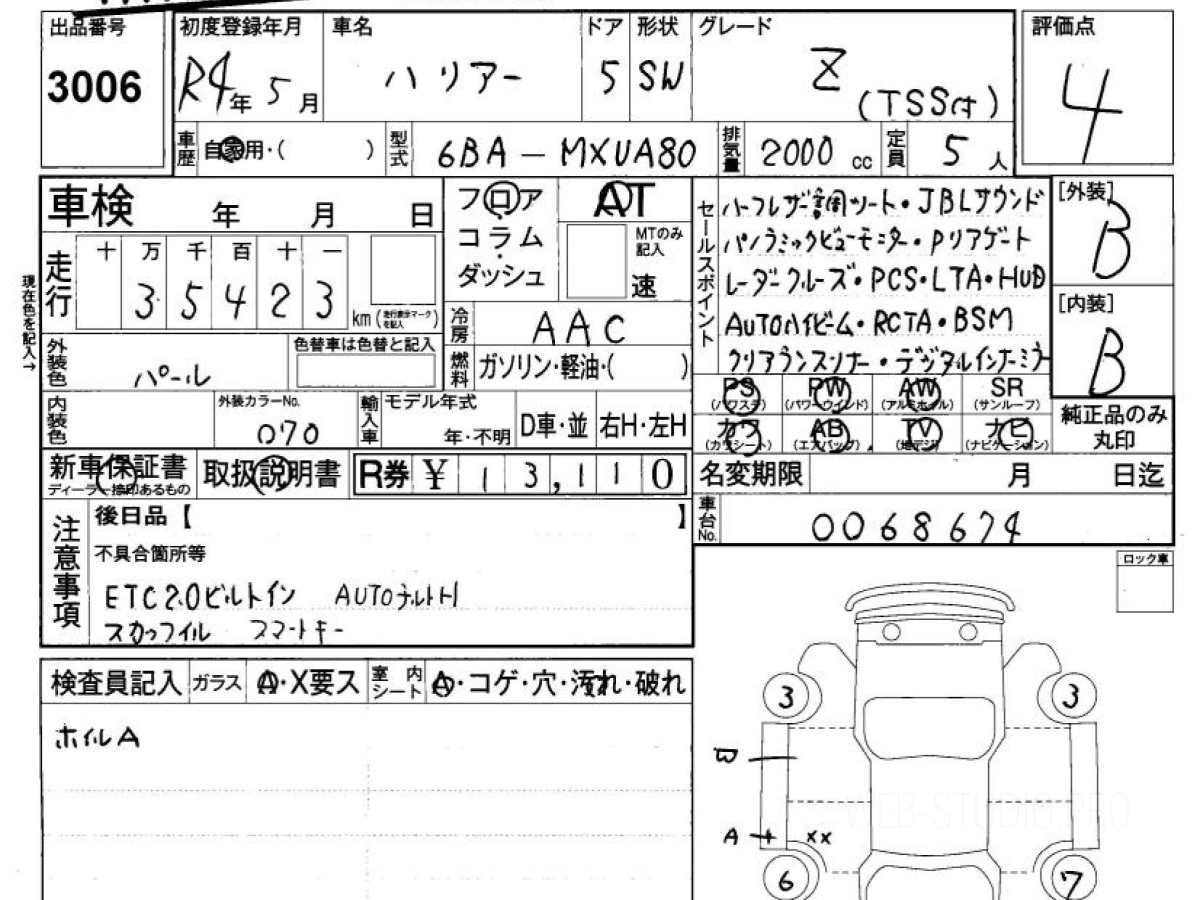 出品番号 初度登録年月 車名 ドア 形状 グレード 評価点
3006 R4年 5月 ハリアー 5 SW Z (TSS付) 4
車歴 自家用・( ) 型式 6BA-MXUA80 排気量 2000 cc 定員 5 人
車検 年 月 日
フロア コラム ダッシュ
AT
MTのみ記入
速
セールスポイント
ハーフレザー調シート・JBLサウンド
パノラミックビューモニター・Pリアゲート
レーダークルーズ・PCS・LTA・HUD
AUTOハイビーム・RCTA・BSM
クリアランスソナー・デジタルインナーミラー
[外装]
B
[内装]
B
現在色を記入→
走行 十 万 千 百 十 一
35423 km (走行表示マークを記入)
冷房 AAC
燃料 ガソリン・軽油・( )
外装色 パール
色替車は色替と記入
内装色
外装カラーNo.
070
輸入車 モデル年式
年・不明 D車・並 右H・左H
PS (パワステ) PW (パワーウインド) AW (アルミホイル) SR (サンルーフ)
カワ (カワシート) AB (エアバッグ) TV (地デジ) ナビ (ナビゲーション)
純正品のみ丸印
新車保証書 ディーラー捺印あるもの
取扱説明書
R券 ¥ 13,110
名変期限 月 日迄
車台No. 0068674
注意事項
後日品【 】
不具合箇所等
ETC2.0ビルトイン AUTOチルトハ
スカッフイル スマートキー
ロック車
検査員記入 ガラス A・X要ス 室内シート A・コゲ・穴・汚れ・破れ
ホイルA
3 3
W
A xx
6 7
WEB-STUDIO.PRO